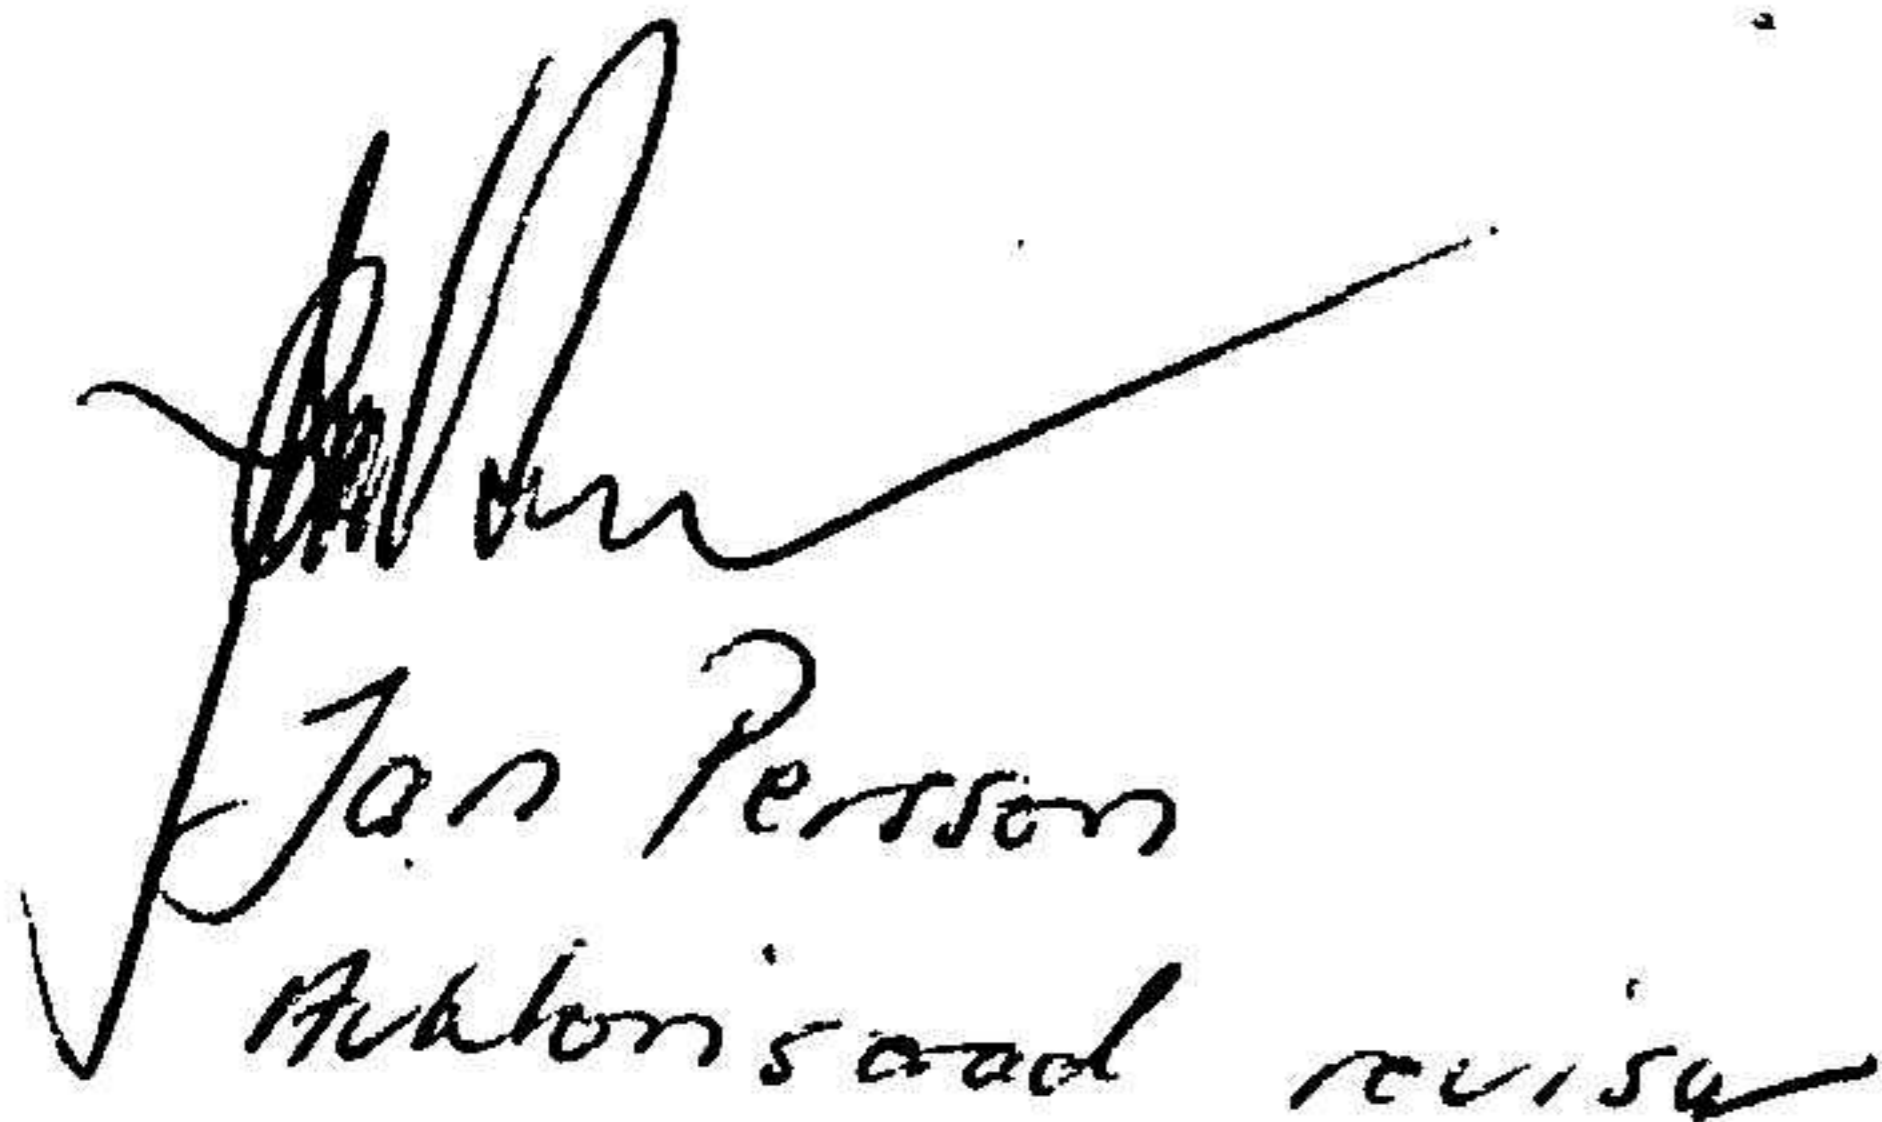 Jan Persson
Auktoriserad revisor